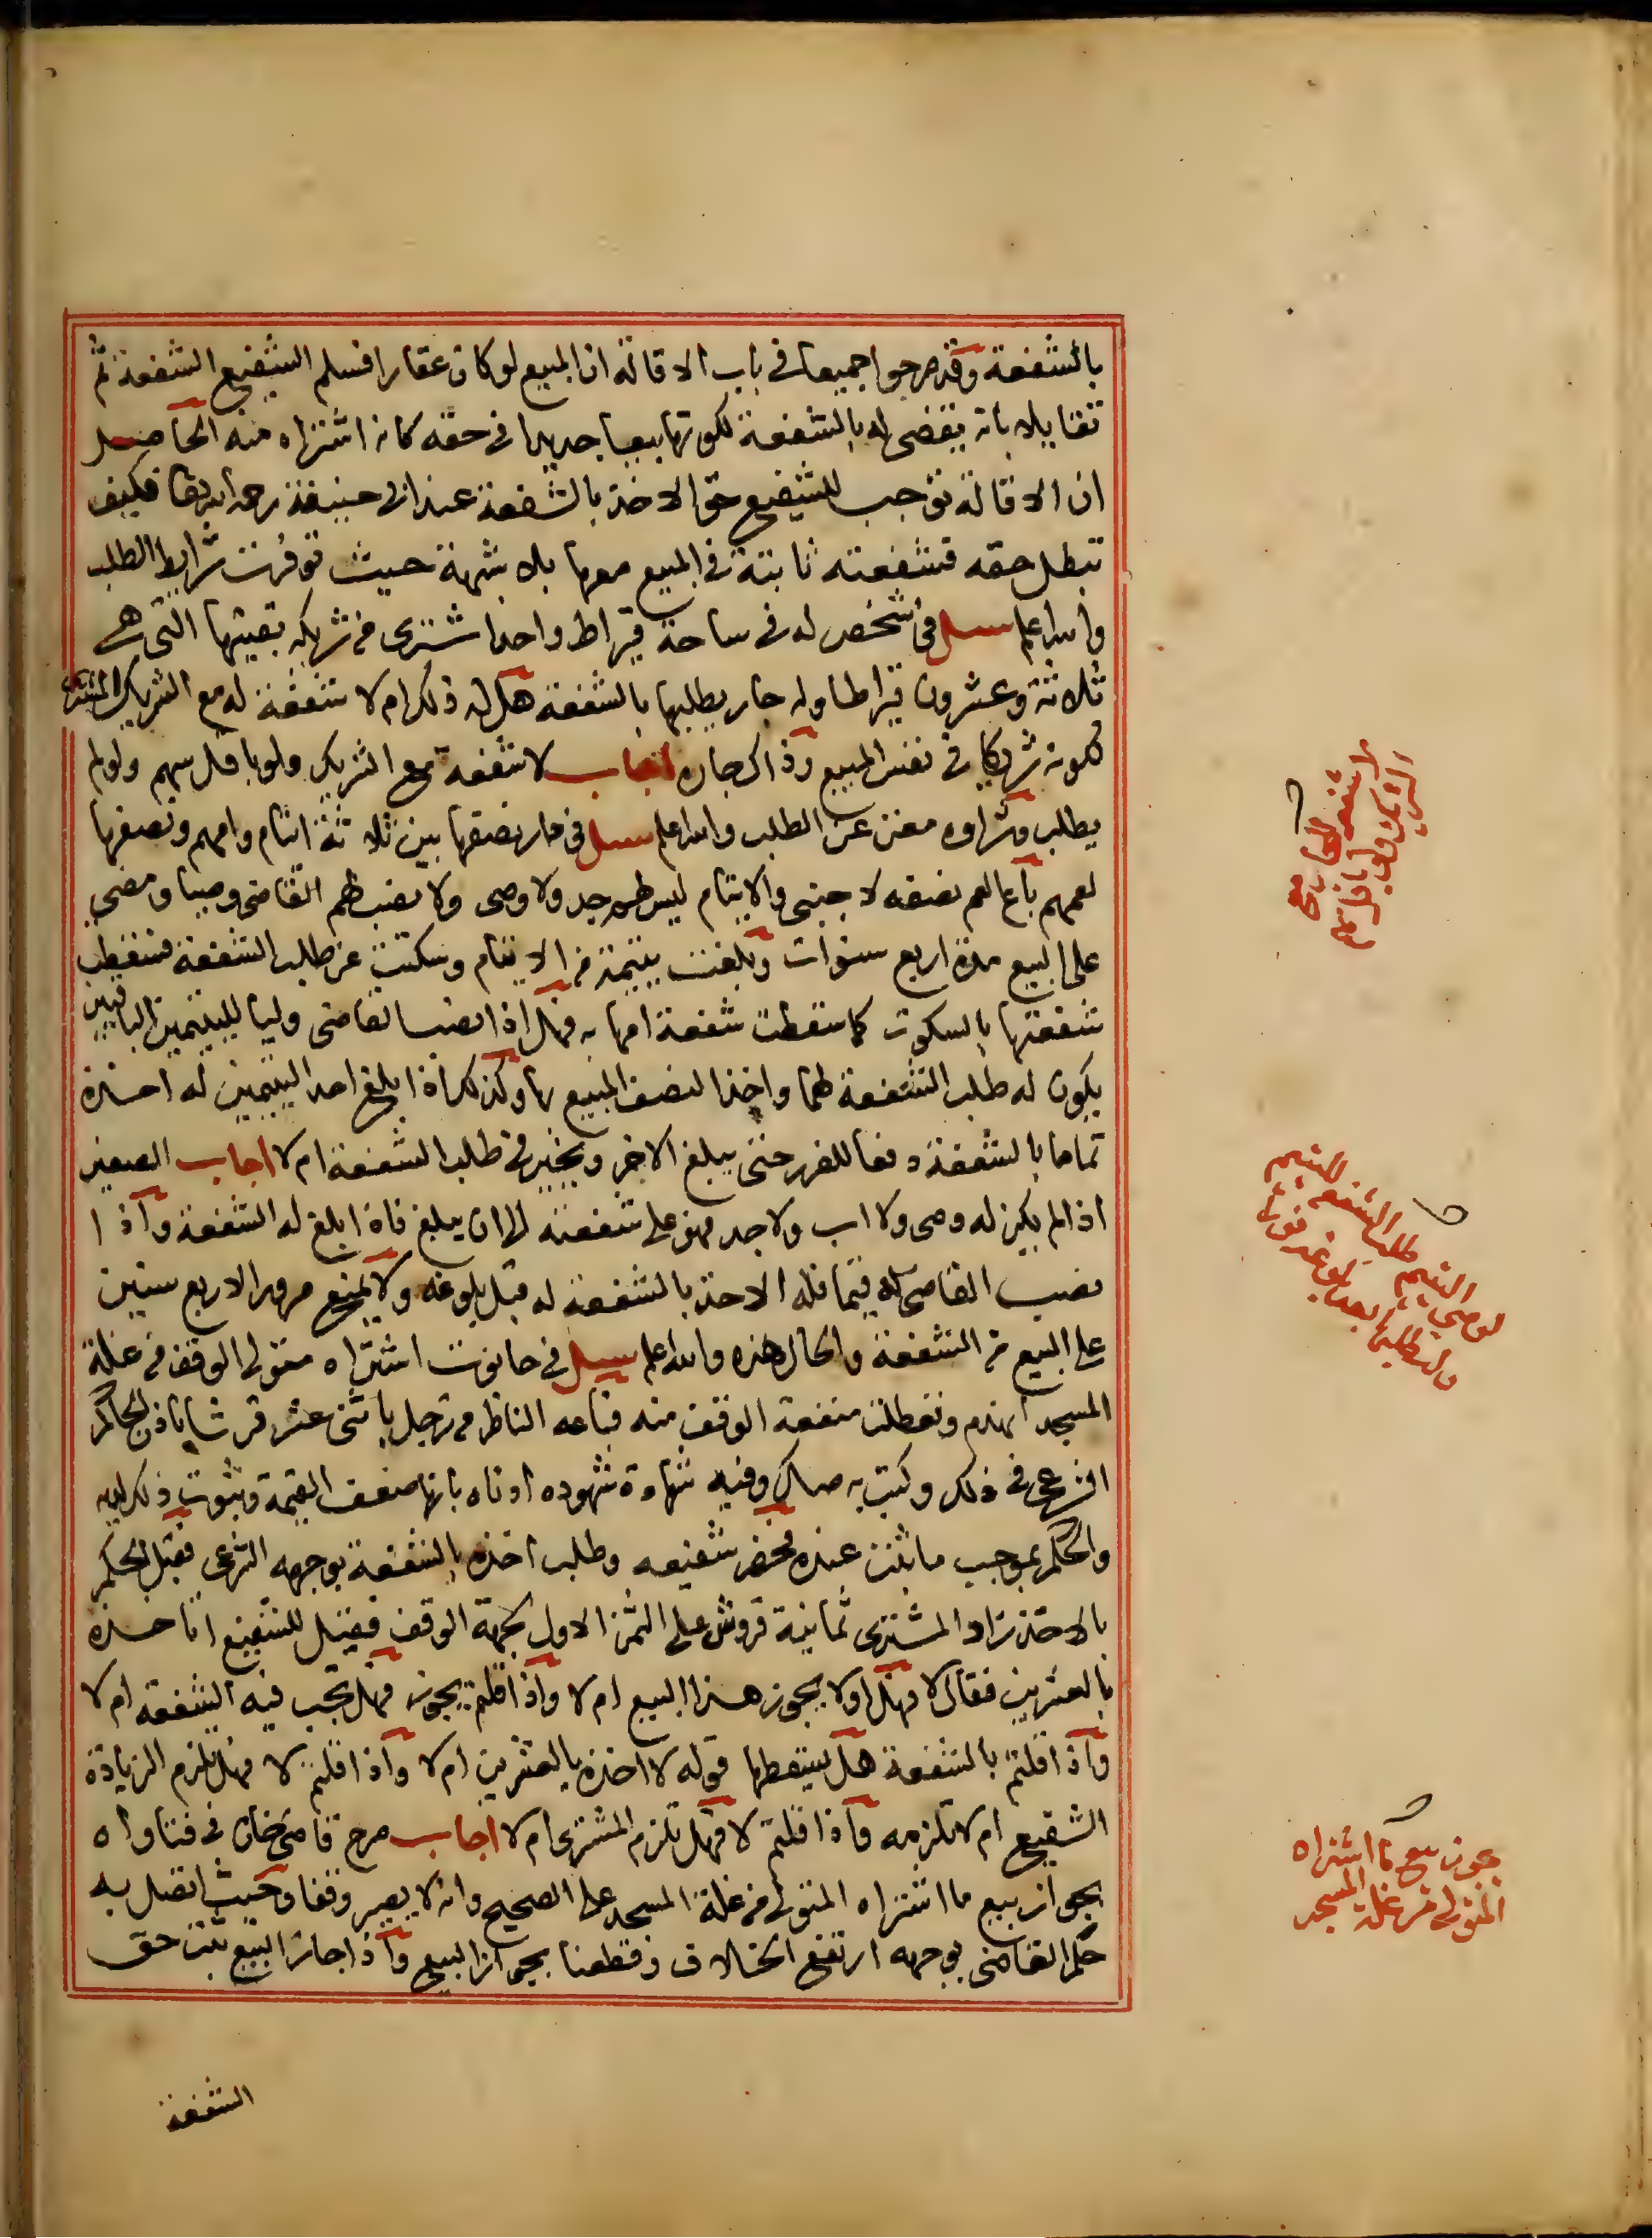 بالشفعة وقد صرحوا جميعا في باب الاقالة ان المبيع لو كان عقارا فسلم الشفيع الشفعة ثم
تقايلا بانه يقضى له بالشفعة لكونها بيعا جديدا في حقه كانه اشتراه منه الحاصل
ان الاقالة توجب للشفيع حق الاخذ بالشفعة عند ابي حنيفة رحمه الله تعا فكيف
تبطل حقه فشفعته ثابتة في المبيع معها بلا شبهة حيث توفرت شرايط الطلب
والله اعلم سيل في شخص له في ساحة قيراط واحد اشترى من شريكه بقيتها التي هي
ثلاثة وعشرون قيراطا وله جار يطلبها بالشفعة هل له ذلك ام لا شفعة له مع الشريك المشترى
لكونه شريكا في نفس المبيع وذاك جاره اجاب لا شفعة مع الشريك ولو باقل سهم ولو لم
يطلب وشراوه مغن عن الطلب والله اعلم سيل في دار نصفها بين ثلاثة ايتام وامهم ونصفها
لعمهم باع العم نصفه لاجنبي والايتام ليس لهم جد ولا وصى ولا نصب لهم القاضى وصيا ومضى
على البيع مدة اربع سنوات وبلغت يتيمة من الايتام وسكتت عن طلب الشفعة فسقطت
شفعتها بالسكوت كما سقطت شفعة امها به فهل اذا نصب القاضى وليا لليتيمين الباقيين
يكون له طلب الشفعة لهما واخذ النصف المبيع بها وكذلك اذا بلغ احد اليتيمين له اخذه
تماما بالشفعة دفعا للضرر حتى يبلغ الاخر ويخير في طلب الشفعة ام لا اجاب الصغير
اذا لم يكن له وصى ولا اب ولا جد فهو على شفعته الى ان يبلغ فاذا بلغ له الشفعة واذا
نصب القاضى له قيما فله الاخذ بالشفعة له قبل بلوغه ولا يمنع مرور الاربع سنين
على البيع من الشفعة والحال هذه والله اعلم سيل في حانوت اشتراه متولى الوقف من غلة
المسجد انهدم وتعطلت منفعة الوقف منه فباعه الناظر من رجل باثنى عشر قرشا باذن الحاكم
الشرعى في ذلك وكتب به صك وفيه شهادة شهوده اداه بانها ضعف القيمة وثبوت ذلك لديه
والحكم بموجب ما ثبت عنده فحضر شفيعه وطلب اخذه بالشفعة بوجهه الشرعى فقبل الحكم
بالاخذ زاد المشترى ثمانية قروش على الثمن الاول لجهة الوقف فقيل للشفيع اتاخذه
بالعشرين فقال لا فهل اولا يجوز هذا البيع ام لا واذا قلتم يجوز فهل تجب فيه الشفعة ام لا
واذا قلتم بالشفعة هل يسقطها قوله لا اخذه بالعشرين ام لا واذا قلتم لا فهل تلزم الزيادة
الشفيع ام لا تلزمه واذا قلتم لا فهل تلزم المشترى ام لا اجاب صرح قاضى خان في فتاواه
بجواز بيع ما اشتراه المتولى من غلة المسجد على الصحيح وانه لا يصير وقفا وحيث اتصل به
حكم القاضى بوجهه ارتفع الخلاف وقطعنا بجواز البيع واذا جاز البيع ثبت حق
الشفعة
لا شفعة للجار مع
الشريك ولو باقل سهم
لوصي اليتيم طلب الشفعة لليتيم
وله طلبها بعد بلوغه فورا
يجوز بيع ما اشتراه
المتولى من غلة المسجد